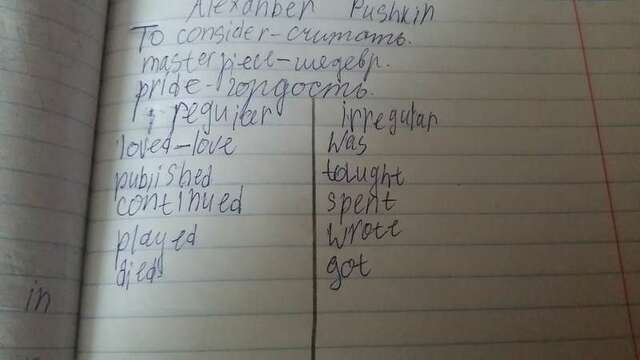 Alexander Pushkin
To consider - считать.
masterpiece - шедевр.
pride - гордость.
regular irregular
loved - love was
published tought
continued spent
played wrote
died got
in